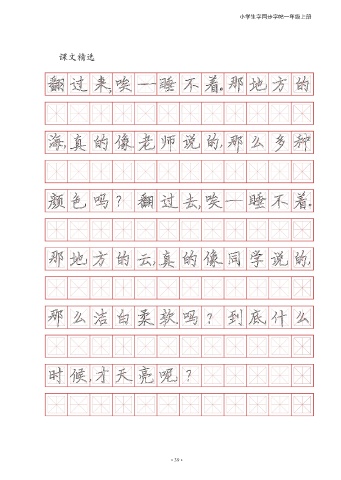 小学生字同步字帖一年级上册
课文精选
翻过来,唉—睡不着。那地方的
海,真的像老师说的,那么多种
颜色吗?翻过去,唉—睡不着。
那地方的云,真的像同学说的,
那么洁白柔软,吗?到底什么
时候,才天亮呢?
·39·